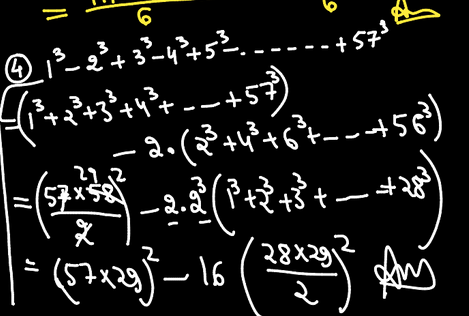 = 6 6 Ans
④ 1³ - 2³ + 3³ - 4³ + 5³ - ....... + 57³
= (1³ + 2³ + 3³ + 4³ + --- + 57³)
- 2. (2³ + 4³ + 6³ + --- + 56³)
= (57 × 58 29 / 2)² - 2.2³ (1³ + 2³ + 3³ + --- + 28³)
= (57×29)² - 16 (28×29 / 2)² Ans